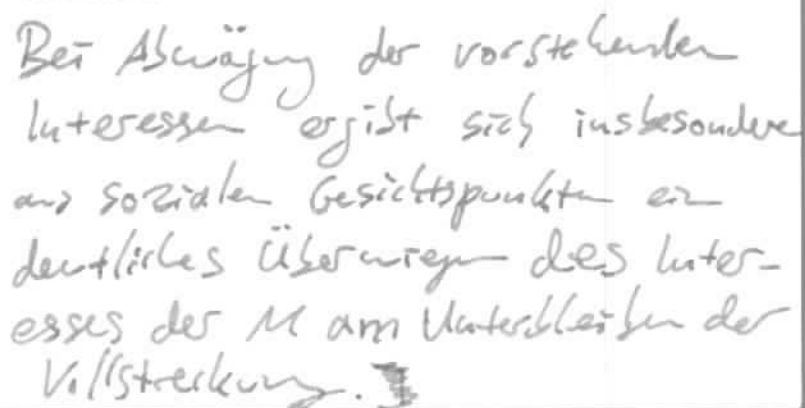 Bei Abwägung der vorstehenden
Interessen ergibt sich insbesondere
aus sozialen Gesichtspunkten ein
deutliches Überwiegen des Inter-
esses der M am Unterbleiben der
Vollstreckung.